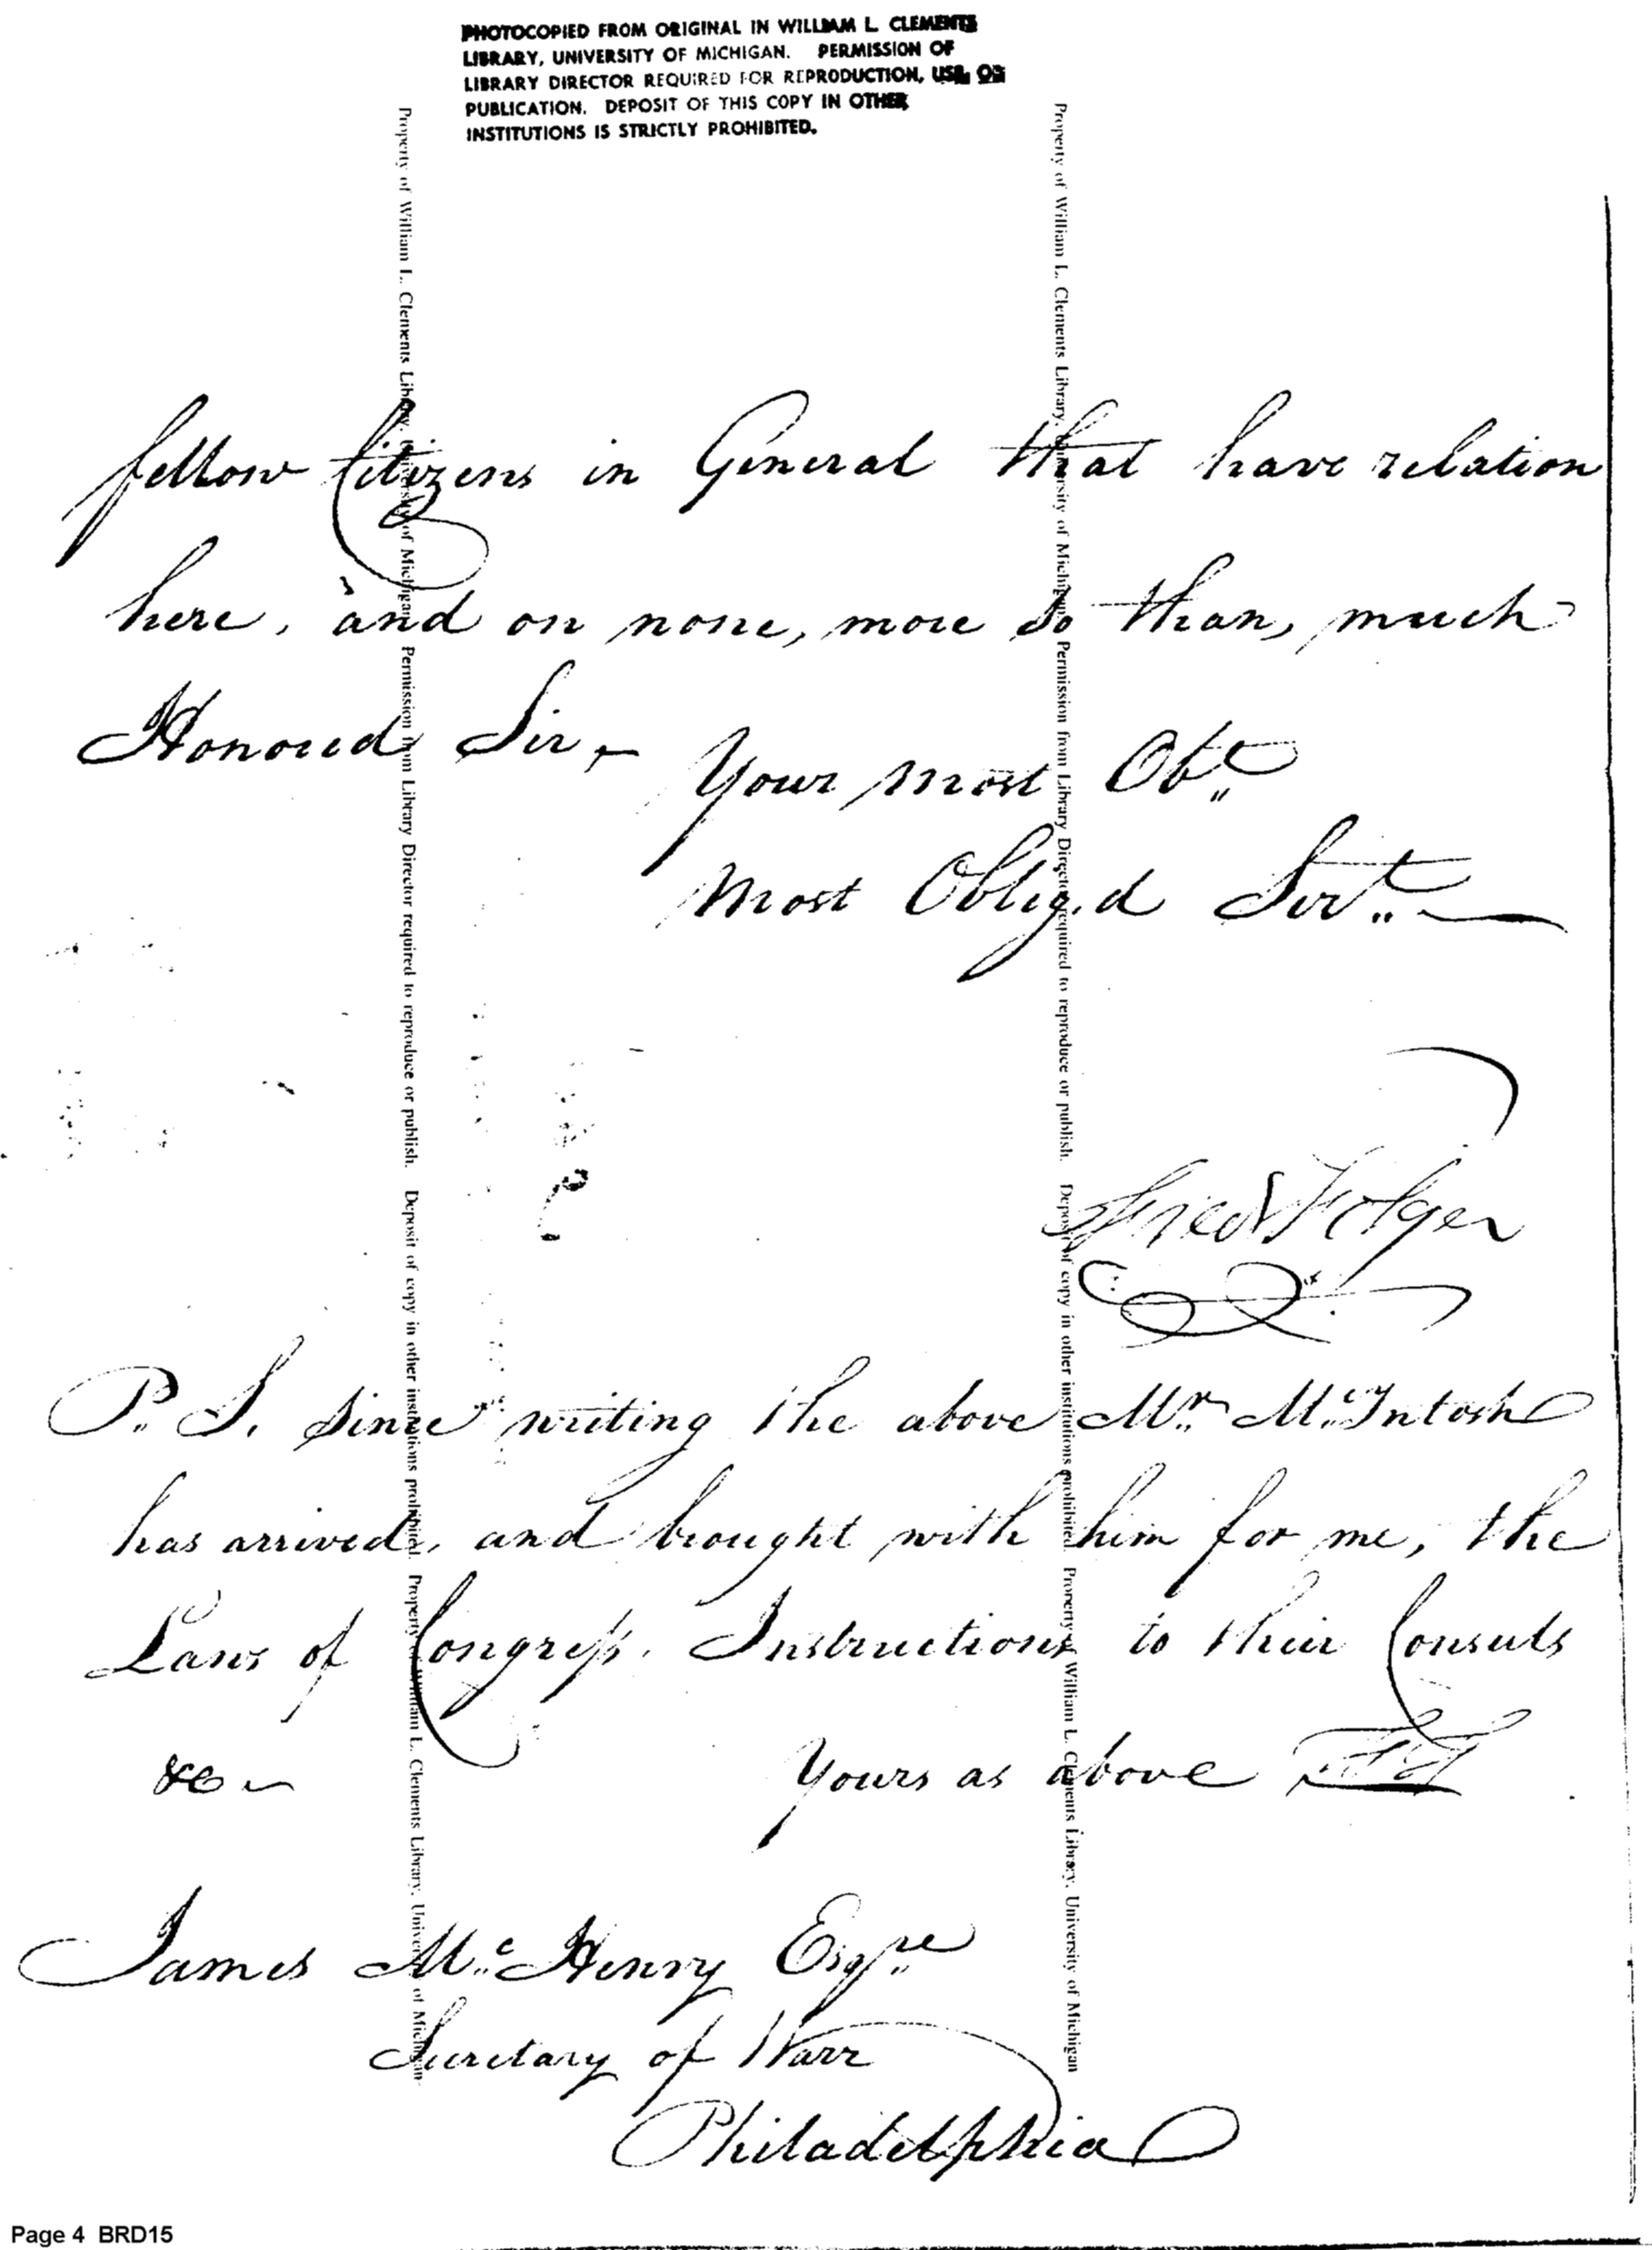 PHOTOCOPIED FROM ORIGINAL IN WILLIAM L. CLEMENTS
LIBRARY, UNIVERSITY OF MICHIGAN. PERMISSION OF
LIBRARY DIRECTOR REQUIRED FOR REPRODUCTION, USE, OR
PUBLICATION. DEPOSIT OF THIS COPY IN OTHER
INSTITUTIONS IS STRICTLY PROHIBITED.
Property of William L. Clements Library, University of Michigan. Permission from Library Director required to reproduce or publish. Deposit of copy in other institutions prohibited. Property of William L. Clements Library, University of Michigan
Property of William L. Clements Library, University of Michigan. Permission from Library Director required to reproduce or publish. Deposit of copy in other institutions prohibited. Property of William L. Clements Library, University of Michigan
fellow Citizens in General that have relation
here, and on none, more so than, much
Honored Sir,
Your most Obt
Most Oblig.d Servt
Fred Folger
P. S. since writing the above Mr. McIntosh
has arrived, and brought with him for me, the
Laws of Congress. Instructions to their Consuls
&c
Yours as above FF
James McHenry Esqre
Secretary of Warr
Philadelphia
Page 4 BRD15